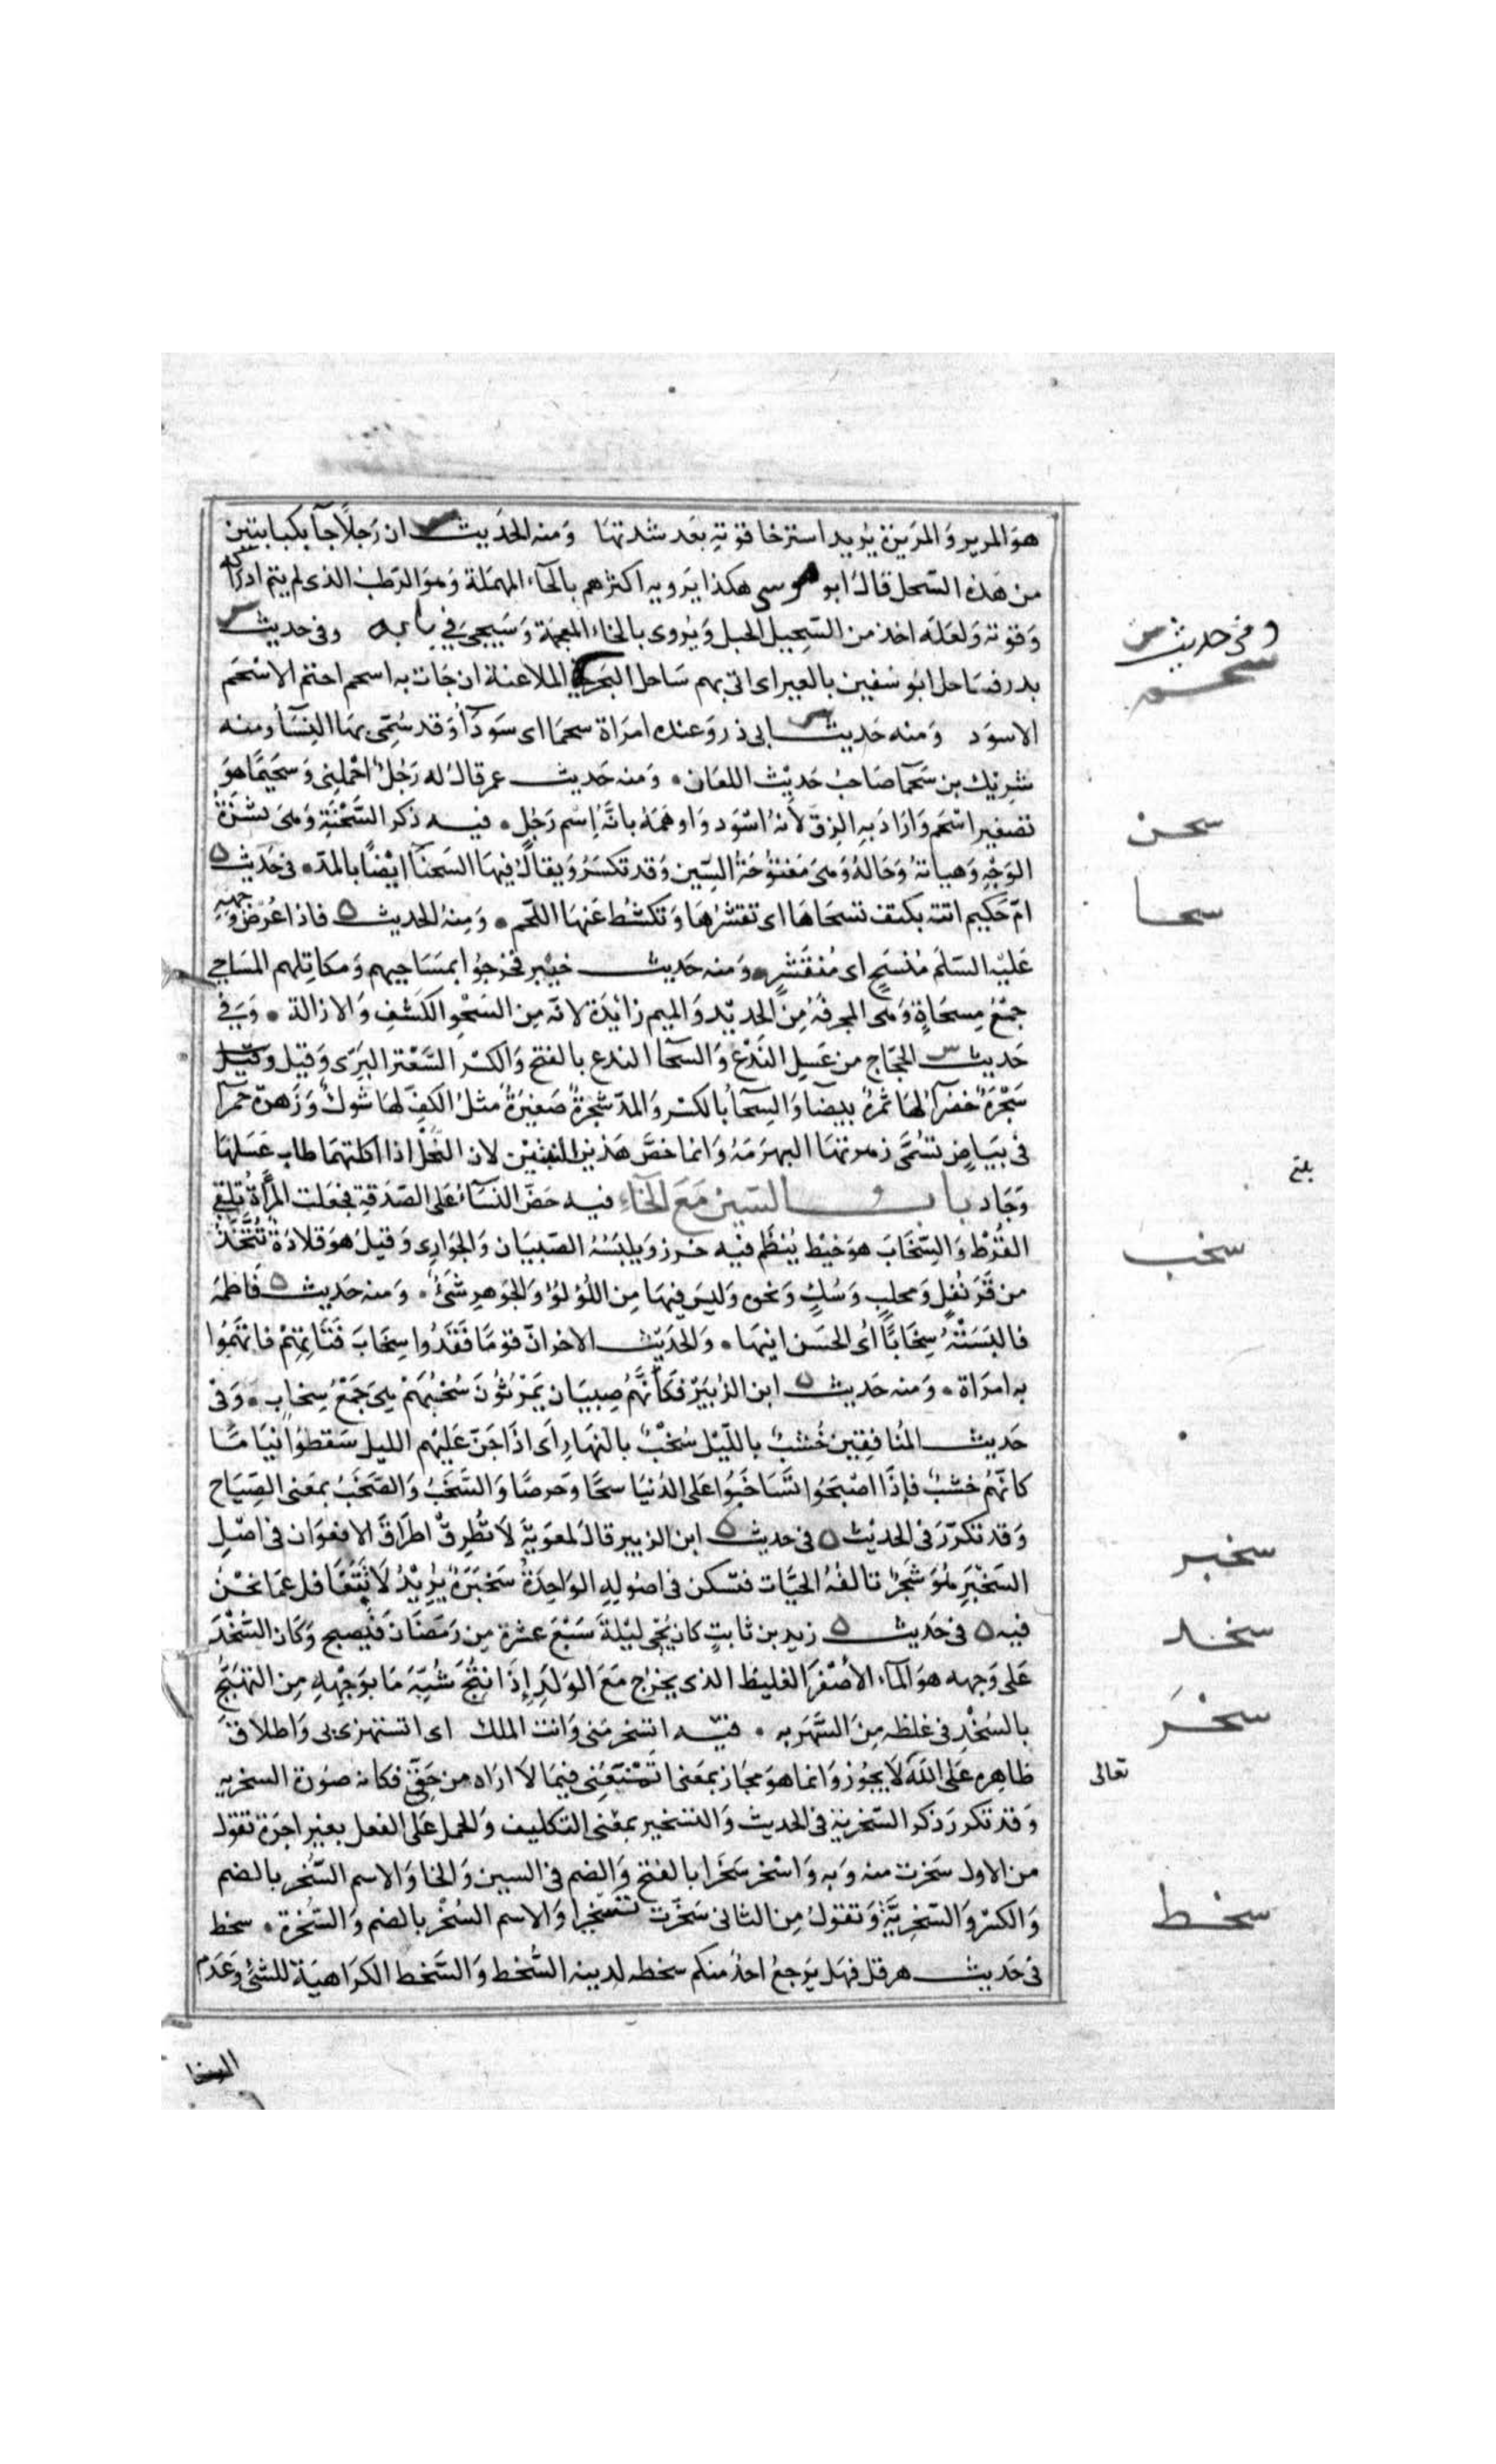 هو المرير والمريرة يريد استرخا قوته بعد شدتها ومنه الحديث ان رجلا جآ بكبايس
من هذه السحل قال ابو موسى هكذا يرويه اكثرهم بالحآء المهملة وهو الرطب الذى لم يتم ادراكه
وقوته ولعله اخذ من السحيل الحبل ويروى بالخاء المعجمة وسيجى فى بابه وفى حديث
وفى حديث
سحم
بدر فساحل ابو سفين بالعير اى اتى بهم ساحل البحر الملاعنة ان جات به اسحم احتم الاسحم
الاسود ومنه حديث ابى ذر وعنده امراة سحما اى سودآ وقد سمى بها النسا ومنه
شريك بن سحما صاحب حديث اللعان ومنه حديث عمر قال له رجل احملنى وسحيما هو
تصغير اسحم واراد به الزق لانه اسود واوهمه بانه اسم رجل فيه ذكر السحنة وهى بشرة
سحن
الوجه وهياته وحاله وهى مفتوحة السين وقد تكسر ويقال فيها السحنا ايضا بالمد فى حديث
سحا
ام حكيم اتته بكتف تسحاها اى تقشرها وتكشط عنها اللحم ومنه الحديث فاذا عرض وجهه
عليه السلم منسح اى منقشر ومنه حديث خيبر فخرجوا بمساحيهم ومكاتلهم المساحى
جمع مسحاة وهى المجرفة من الحديد والميم زائدة لانه من السحو الكشف والازالة وفى
حديث الحجاج من عسل الندغ والسحا الندغ بالفتح والكسر السعتر البرى وقيل
شجرة خضرآ لها ثمرة بيضآ والسحآ بالكسر والمد شجرة صغيرة مثل الكف لها شوك وزهرة حمرآ
فى بياض تسمى زهرتها البهرمة وانما خص هذين النبتين لان النحل اذا اكلتهما طاب عسلها
بلغ
وجاد باب السين مع الخاء فيه حض النسآء على الصدقة فجعلت المرأة تلقى
القرط والسخاب هو خيط ينظم فيه خرز ويلبسه الصبيان والجوارى وقيل هو قلادة تتخذ
سخب
من قرنفل ومحلب وسك ونحوه وليس فيها من اللؤلؤ والجوهر شئ ومنه حديث فاطمة
فالبسته سخابا اى الحسن ابنها والحديث الاخر ان قوما فقدوا سخاب فتاتهم فاتهموا
به امراة ومنه حديث ابن الزبير فكأنهم صبيان يمرثون سخبهم هى جمع سخاب وفى
حديث المنافقين خشب بالليل سخب بالنهار اى اذا جن عليهم الليل سقطوا نياما
كانهم خشب فاذا اصبحوا تساخبوا على الدنيا شحا وحرصا والسخب والصخب بمعنى الصياح
وقد تكرر فى الحديث فى حديث ابن الزبير قال لمعوية لا تطرق اطراق الافعوان فى اصل
سخبر
السخبر هو شجر تالفه الحيات فتسكن فى اصوله الواحدة سخبرة يريد لا تتغافل عما نحن
فيه فى حديث زيد بن ثابت كان يحيى ليلة سبع عشرة من رمضان فيصبح وكان السخد
سخد
على وجهه هو المآء الأصفر الغليظ الذى يخرج مع الولد إذا نتج شبه ما بوجهه من التهيج
بالسخد فى غلظه من السهر به فيه اتسخر منى وانت الملك اى اتستهزى بى واطلاق
سخر
ظاهره على الله لا يجوز وانما هو مجاز بمعنى اتضعنى فيما لا اراه من حقى فكانه صورة السخرية
تعالى
وقد تكرر ذكر السخرية فى الحديث والتسخير بمعنى التكليف والحمل على الفعل بغير اجرة تقول
من الاول سخرت منه وبه واسخر سخرا بالفتح والضم فى السين والخا والاسم السخر بالضم
والكسر والسخرية وتقول من الثانى سخرت تسخيرا والاسم السخر بالضم والسخرة سخط
سخط
فى حديث هرقل فهل يرجع احد منكم سخطه لدينه السخط والسخط الكراهية للشئ وعدم
الرضا